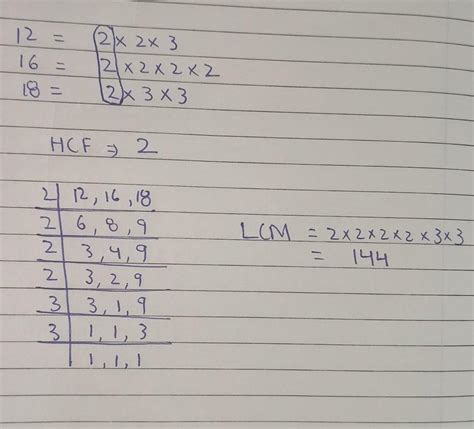 12 = 2 × 2 × 3
16 = 2 × 2 × 2 × 2
18 = 2 × 3 × 3
HCF ⇒ 2
2 | 12, 16, 18
2 | 6, 8, 9
2 | 3, 4, 9
2 | 3, 2, 9
3 | 3, 1, 9
3 | 1, 1, 3
1, 1, 1
LCM = 2×2×2×2×3×3
= 144